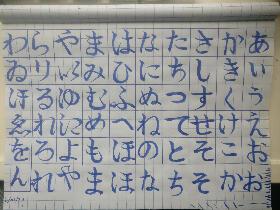 あいうえおお
かきくけこか
さしすせそそ
たちつてとち
なにぬねのな
はひふへほほ
まみむめもま
やいゆよや
らりるれろれ
わゐゑをん